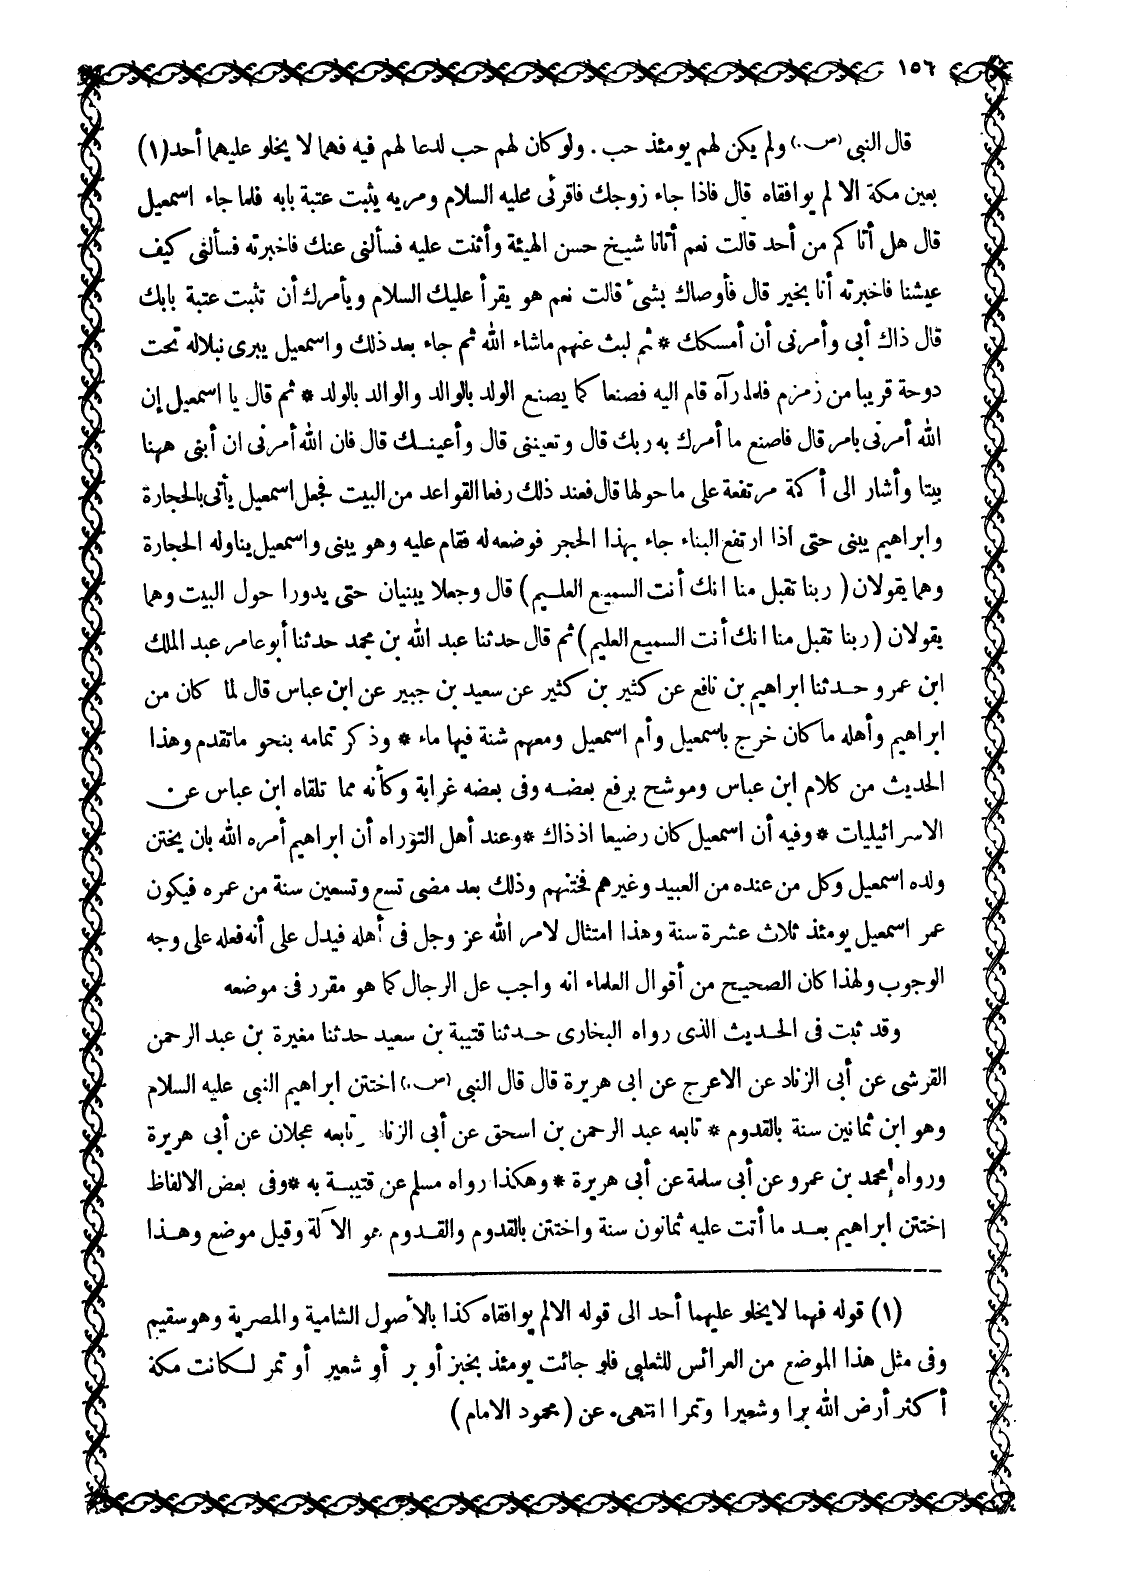 ١٥٦
قال النبى (ص.) ولم يكن لهم يومئذ حب . ولو كان لهم حب لدعا لهم فيه فهما لا يخلو عليهما أحد (١)
بعين مكة الا لم يوافقاه قال فاذا جاء زوجك فاقرئى عليه السلام ومريه يثبت عتبة بابه فلما جاء اسمعيل
قال هل أتاكم من أحد قالت نعم أتانا شيخ حسن الهيئة وأثنت عليه فسألنى عنك فاخبرته فسألنى كيف
عيشنا فاخبرته أنا بخير قال فأوصاك بشئ قالت نعم هو يقرأ عليك السلام ويأمرك أن تثبت عتبة بابك
قال ذاك أبى وأمرنى أن أمسكك * ثم لبث عنهم ماشاء الله ثم جاء بعد ذلك واسمعيل يبرى نبلاله تحت
دوحة قريبا من زمزم فلما رآه قام اليه فصنعا كما يصنع الولد بالوالد والوالد بالولد * ثم قال يا اسمعيل إن
الله أمرنى بامر قال فاصنع ما أمرك به ربك قال وتعيننى قال وأعينك قال فان الله أمرنى ان أبنى ههنا
بيتا وأشار الى أكمة مرتفعة على ما حولها قال فعند ذلك رفعا القواعد من البيت فجعل اسمعيل يأتى بالحجارة
وابراهيم يبنى حتى اذا ارتفع البناء جاء بهذا الحجر فوضعه له فقام عليه وهو يبنى واسمعيل يناوله الحجارة
وهما يقولان ( ربنا تقبل منا انك أنت السميع العليم ) قال وجعلا يبنيان حتى يدورا حول البيت وهما
يقولان ( ربنا تقبل منا انك أنت السميع العليم ) ثم قال حدثنا عبد الله بن محمد حدثنا أبو عامر عبد الملك
ابن عمرو حدثنا ابراهيم بن نافع عن كثير بن كثير عن سعيد بن جبير عن ابن عباس قال لما كان من
ابراهيم وأهله ما كان خرج باسمعيل وأم اسمعيل ومعهم شنة فيها ماء * وذكر تمامه بنحو ماتقدم وهذا
الحديث من كلام ابن عباس وموشح برفع بعضه وفى بعضه غرابة وكأنه مما تلقاه ابن عباس عن
الاسرائيليات * وفيه أن اسمعيل كان رضيعا اذ ذاك * وعند أهل التوراه أن ابراهيم أمره الله بان يختن
ولده اسمعيل وكل من عنده من العبيد وغيرهم فختنهم وذلك بعد مضى تسع وتسعين سنة من عمره فيكون
عمر اسمعيل يومئذ ثلاث عشرة سنة وهذا امتثال لامر الله عز وجل فى أهله فيدل على أنه فعله على وجه
الوجوب ولهذا كان الصحيح من أقوال العلماء انه واجب عل الرجال كما هو مقرر فى موضعه
وقد ثبت فى الحديث الذى رواه البخارى حدثنا قتيبة بن سعيد حدثنا مغيرة بن عبد الرحمن
القرشى عن أبى الزناد عن الاعرج عن ابى هريرة قال قال النبى (ص.) اختتن ابراهيم النبى عليه السلام
وهو ابن ثمانين سنة بالقدوم * تابعه عبد الرحمن بن اسحق عن أبى الزناد تابعه عجلان عن أبى هريرة
ورواه محمد بن عمرو عن أبى سلمة عن أبى هريرة * وهكذا رواه مسلم عن قتيبة به * وفى بعض الالفاظ
اختتن ابراهيم بعد ما أتت عليه ثمانون سنة واختتن بالقدوم والقدوم هو الآلة وقيل موضع وهذا
(١) قوله فهما لا يخلو عليهما أحد الى قوله الالم يوافقاه كذا بالأصول الشامية والمصرية وهو سقيم
وفى مثل هذا الموضع من العرائس للثعلبى فلو جائت يومئذ بخبز أو بر أو شعير أو تمر لكانت مكة
أكثر أرض الله برا وشعيرا وتمرا انتهى. عن ( محمود الامام )